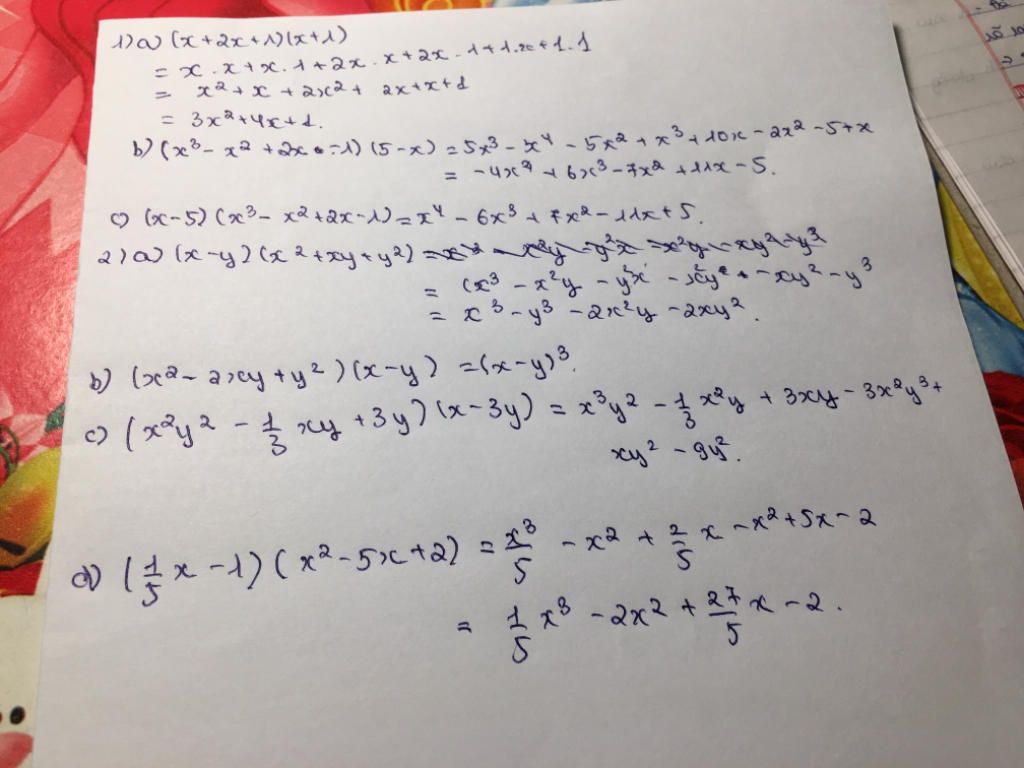 1) a) (x+2x+1)(x+1)
= x . x + x . 1 + 2x . x + 2x . 1 + 1.x + 1.1
= x² + x + 2x² + 2x + x + 1
= 3x² + 4x + 1.
b) (x³ - x² + 2x - 1) (5 - x) = 5x³ - x⁴ - 5x² + x³ + 10x - 2x² - 5 + x
= -4x⁴ + 6x³ - 7x² + 11x - 5.
c) (x-5) (x³ - x² + 2x - 1) = x⁴ - 6x³ + 7x² - 11x + 5.
2) a) (x-y) (x² + xy + y²)
= (x³ - x²y - y²x - x²y - xy² - y³
= x³ - y³ - 2x²y - 2xy².
b) (x² - 2xy + y²) (x - y) = (x-y)³.
c) (x²y² - 1/3 xy + 3y) (x - 3y) = x³y² - 1/3 x²y + 3xy - 3x²y³ +
xy² - 9y².
d) (1/5 x - 1) (x² - 5x + 2) = x³/5 - x² + 2/5 x - x² + 5x - 2
= 1/5 x³ - 2x² + 27/5 x - 2.